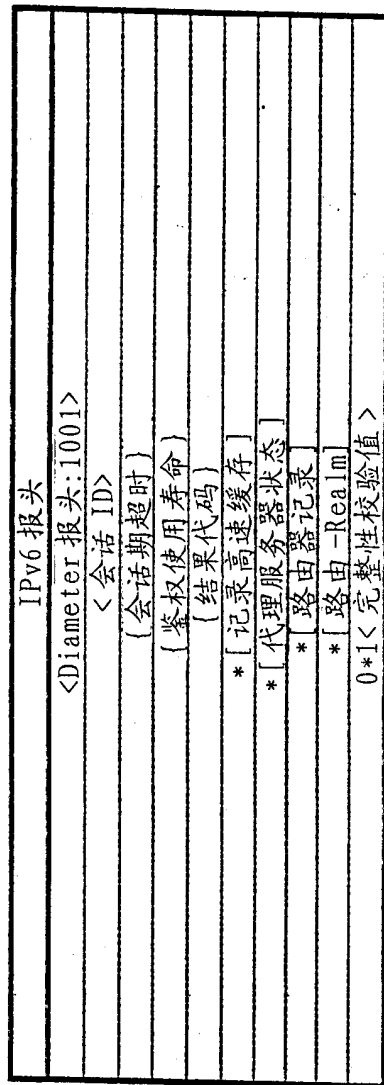 IPv6 报头
<Diameter 报头:1001>
<会话 ID>
{会话期超时}
{鉴权使用寿命}
{结果代码}
*[记录高速缓存]
*[代理服务器状态]
*[路由器记录]
*[路由-Realm]
0*1<完整性校验值>